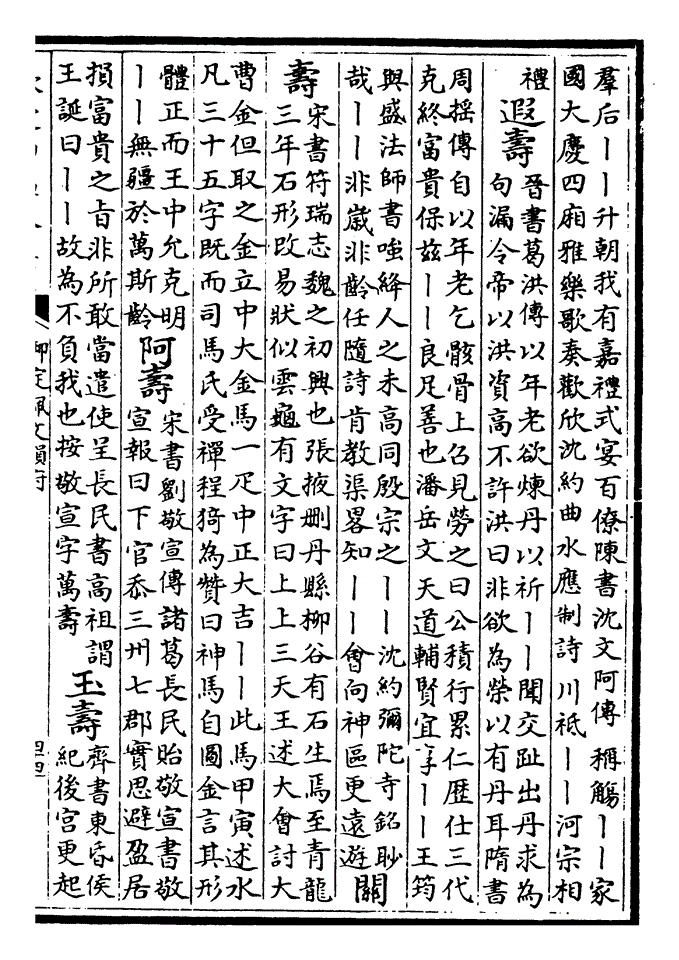 羣后丨丨升朝我有嘉禮式宴百僚陳書沈文阿傳稱觴丨丨家
國大慶四廂雅樂歌奏歡欣沈約曲水應制詩川祇丨丨河宗相
禮
遐壽
晉書葛洪傳以年老欲煉丹以祈丨丨聞交趾出丹求為
句漏令帝以洪資高不許洪曰非欲為榮以有丹耳隋書
周揺傳自以年老乞骸骨上召見勞之曰公積行累仁歴仕三代
克終富貴保兹丨丨良足善也潘岳文天道輔賢宜享丨丨王筠
與盛法師書嗤絳人之未高同殷宗之丨丨沈約彌陀寺銘眇
哉丨丨非歲非齡任隨詩肯教渠畧知丨丨會向神區更遠遊
關
壽
宋書符瑞志魏之初興也張掖刪丹縣柳谷有石生焉至青龍
三年石形改易狀似雲龜有文字曰上上三天王述大會討大
曹金但取之金立中大金馬一疋中正大吉丨丨此馬甲寅述水
凡三十五字既而司馬氏受禪程猗為贊曰神馬自圖金言其形
體正而王中允克明
丨丨無疆於萬斯齡
阿壽
宋書劉敬宣傳諸葛長民貽敬宣書敬
宣報曰下官忝三州七郡實思避盈居
損富貴之㫖非所敢當遣使呈長民書高祖謂
王誕曰丨丨故為不負我也按敬宣字萬壽
玉壽
齊書東昏侯
紀後宫更起
御定佩文韻府